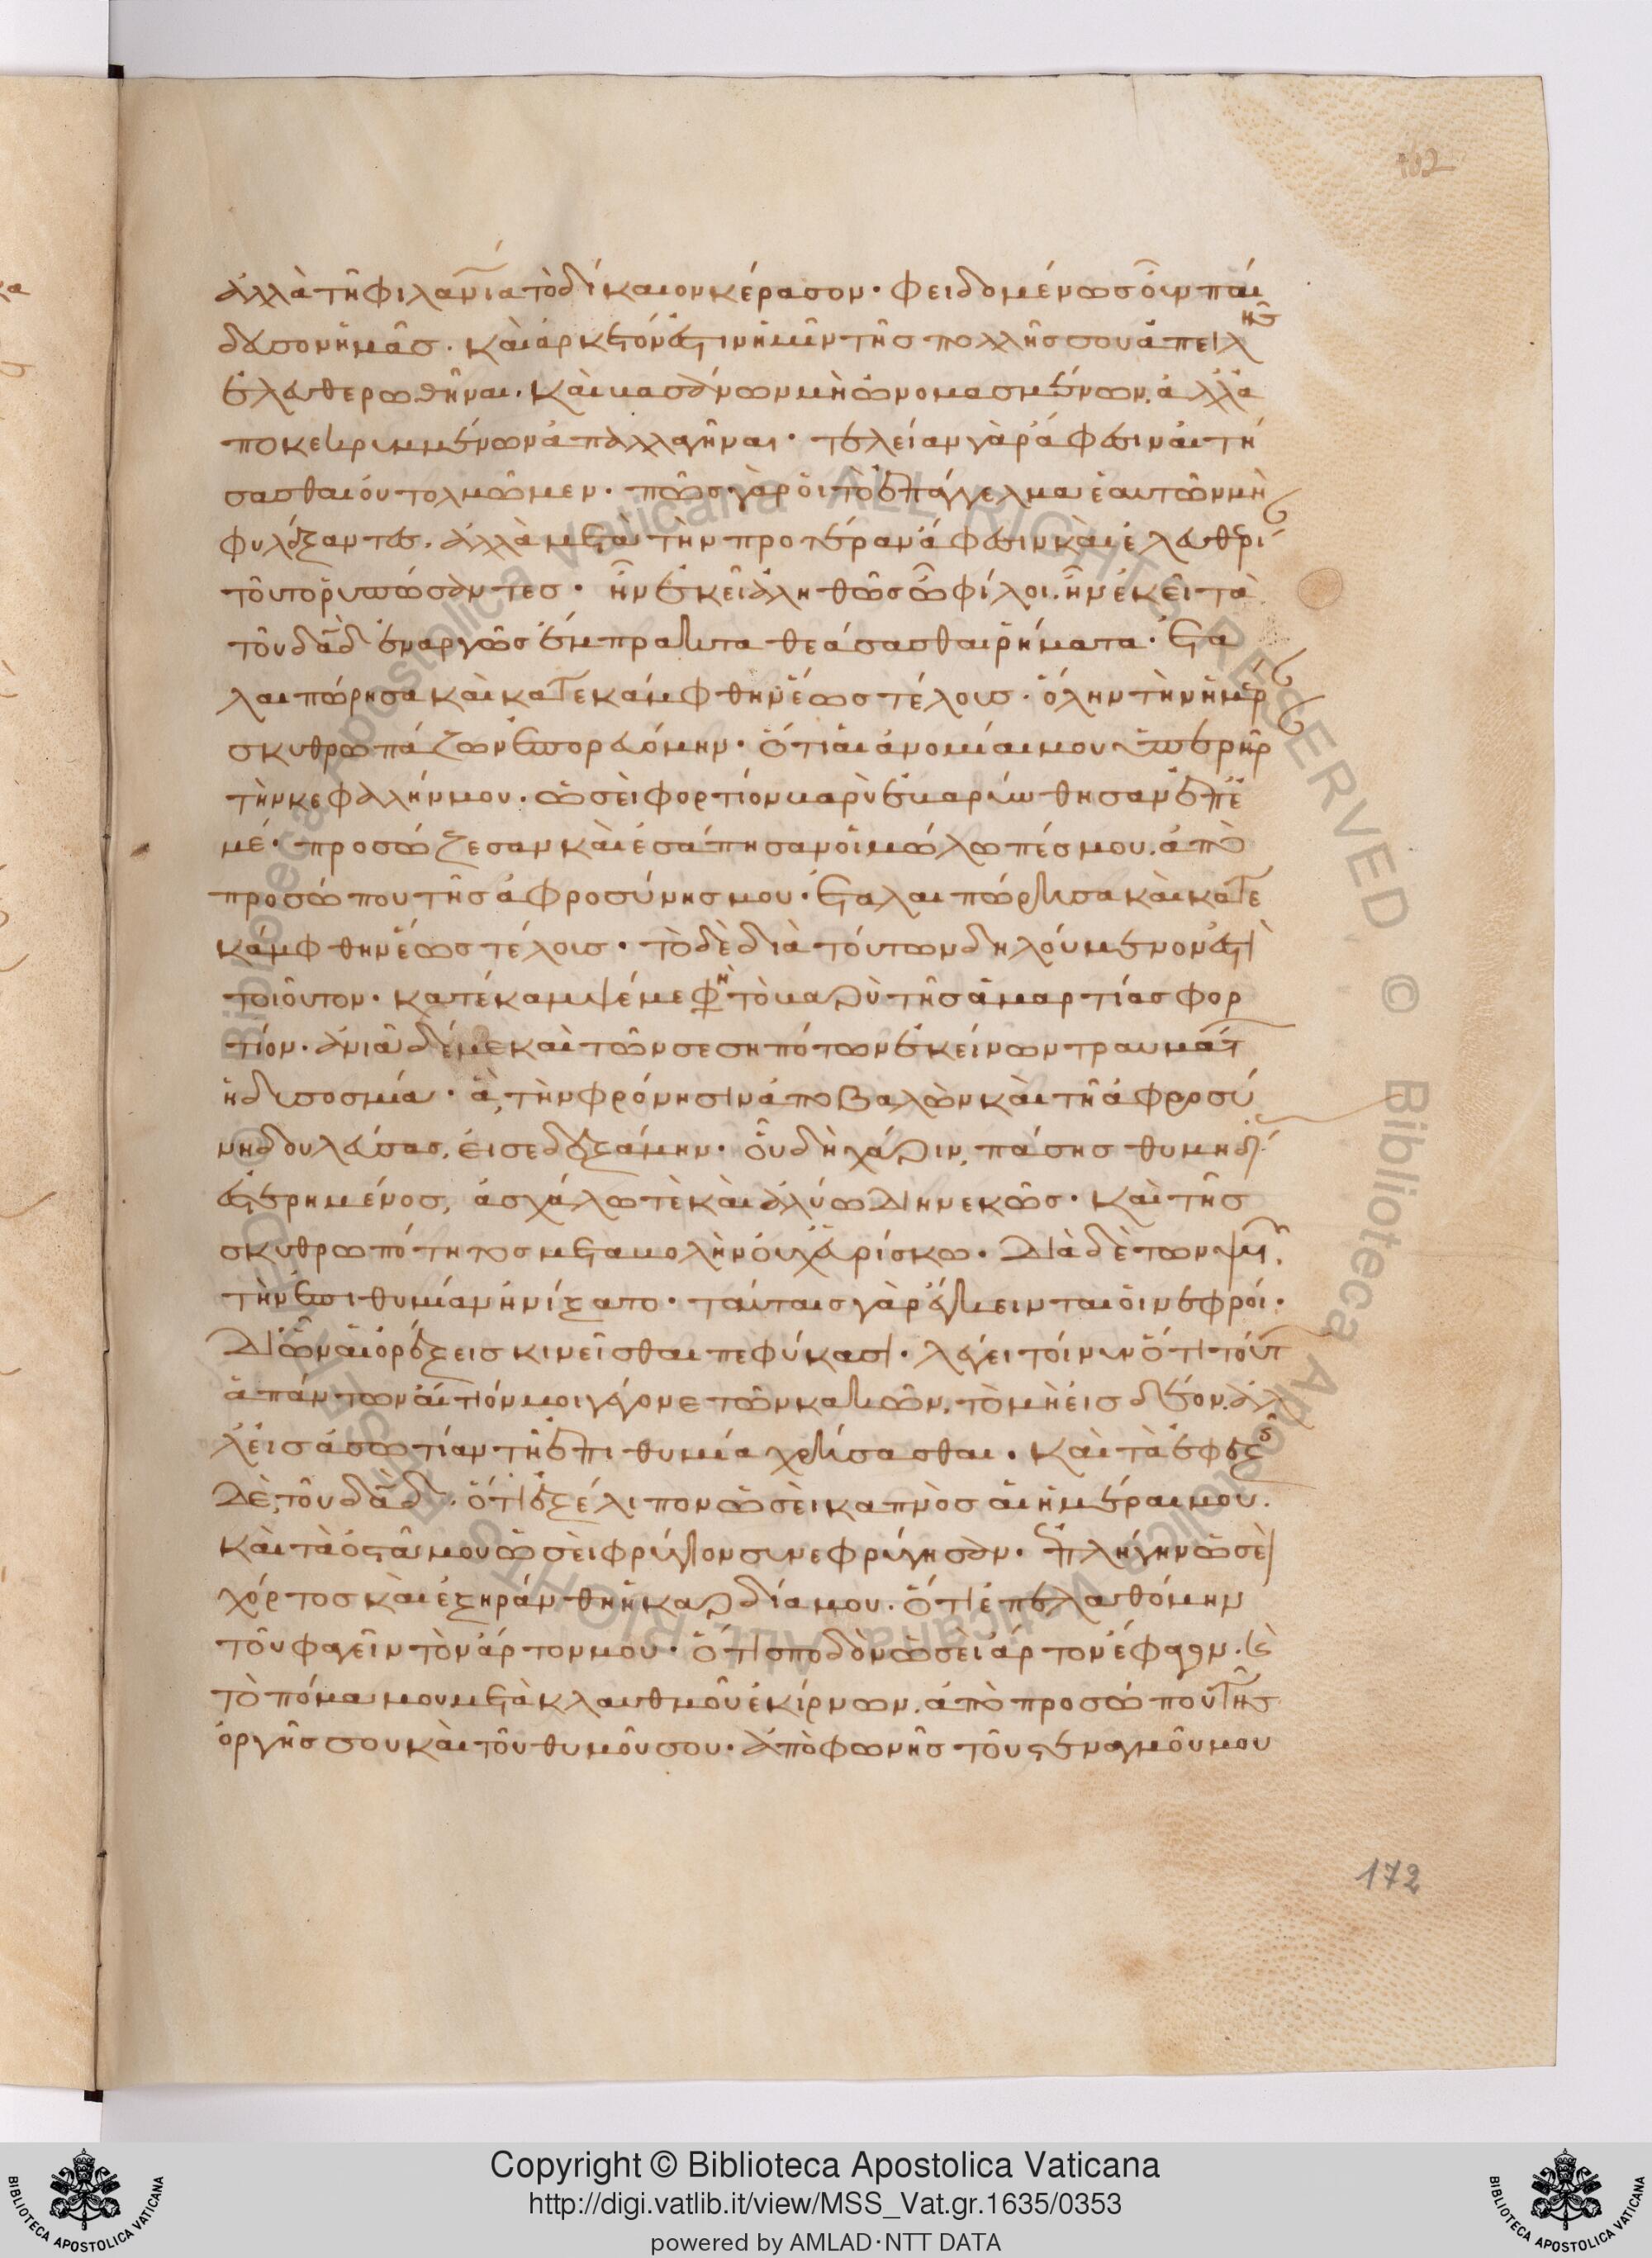 ἀλλὰ τῆ φιλανια τὸ δίκαιον κέρασον· φειδομένως οὖν παί
δευσον ἡμᾶς. καὶ ἀρκετόν ἐστιν ἡμῖν τῆς πολλῆς σου ἀπειλῆς
ἐλευθερωθῆναι. καὶ βασάνων μὴ ὠνομασμένων, ἀλλὰ
ποκεκριμμένων ἀπαλλαγῆναι· τελείαν γὰρ ἄφεσιν αἰτή
σασθαι οὐ τολμῶμεν· πῶς γὰρ οἱ τὸ ἐπάγγελμα ἑαυτῶν μὴ
φυλάξαντες. ἀλλὰ μετὰ τὴν προτέραν ἄφεσιν καὶ ἐλευθερί
τοῦτο ῥυπώσαντες· ἦν ἐκεῖ ἀληθῶς ὦ φίλοι. ἦν ἐκεῖ τὰ
τοῦ δαδ ἐναργῶς ἔμπρακτα θεάσασθαι ῥήματα· ἐτα
λαιπώρησα καὶ κατεκάμφθην ἕως τέλους. ὅλην τὴν ἡμέρ
σκυθρωπάζων ἐπορευόμην· ὅτι αἱ ἀνομίαι μου ὑπερῆρ
τὴν κεφαλήν μου. ὡσεὶ φορτίον βαρὺ ἐβαρύνθησαν ἐπ' ἐ
μέ· προσώζεσαν καὶ ἐσάπησαν οἱ μώλωπές μου. ἀπὸ
προσώπου τῆς ἀφροσύνης μου· ἐταλαιπώρησα καὶ κατε
κάμφθην ἕως τέλους· τὸ δὲ διὰ τούτων δηλούμενον ἐστὶ
τοιοῦτον· κατέκαμψέ με φη τὸ βαρὺ τῆς ἁμαρτίας φορ
τίον. ἀνιᾶ δέ με καὶ τῶν σεσηπότων ἐκείνων τραυμάτ
ἡ δυσοσμία· ἃ, τὴν φρόνησιν ἀποβαλὼν καὶ τῆ ἀφροσύ
νη δουλεύσας, εἰσεδεξάμην· οὗ δὴ χάριν, πάσης θυμηδί
ἐστερημένος, ἀσχάλω τὲ καὶ ἀλύω διηνεκῶς· καὶ τῆς
σκυθρωπότητος μεταβολὴν οὐχ εὑρίσκω. διὰ δὲ τῶν ψυ
τὴν ἐπιθυμίαν ἠνίξατο· ταύταις γὰρ ἔγκεινται οἱ νεφροί·
δι' ὧν αἱ ὀρέξεις κινεῖσθαι πεφύκασι. λέγει τοίνυν ὅτι τοῦτ
ἁπάντων αἴτιόν μοι γέγονε τῶν κακῶν. τὸ μὴ εἰς δέον. ἀλ
λ' εἰς ἀσωτίαν τῆ ἐπιθυμία χρήσασθαι. καὶ τὰ ἐφεξῆς
δὲ, τοῦ δαδ. ὅτι ἐξέλιπον ὡσεὶ καπνὸς αἱ ἡμέραι μου.
καὶ τὰ ὀστᾶ μου ὡσεὶ φρύγιον συνεφρύγησαν. ἐπλήγην ὡσεὶ
χόρτος καὶ ἐξηράνθη ἡ καρδία μου. ὅτι ἐπελαθόμην
τοῦ φαγεῖν τὸν ἄρτον μου· ὅτι σποδὸν ὡσεὶ ἄρτον ἔφαγον. καὶ
τὸ πόμα μου μετὰ κλαυθμοῦ ἐκίρνων. ἀπὸ προσώπου τῆς
ὀργῆς σου καὶ τοῦ θυμοῦ σου. ἀπὸ φωνῆς τοῦ στεναγμοῦ μου
172
Copyright © Biblioteca Apostolica Vaticana
http://digi.vatlib.it/view/MSS_Vat.gr.1635/0353
powered by AMLAD·NTT DATA
BIBLIOTECA APOSTOLICA VATICANA
BIBLIOTECA APOSTOLICA VATICANA